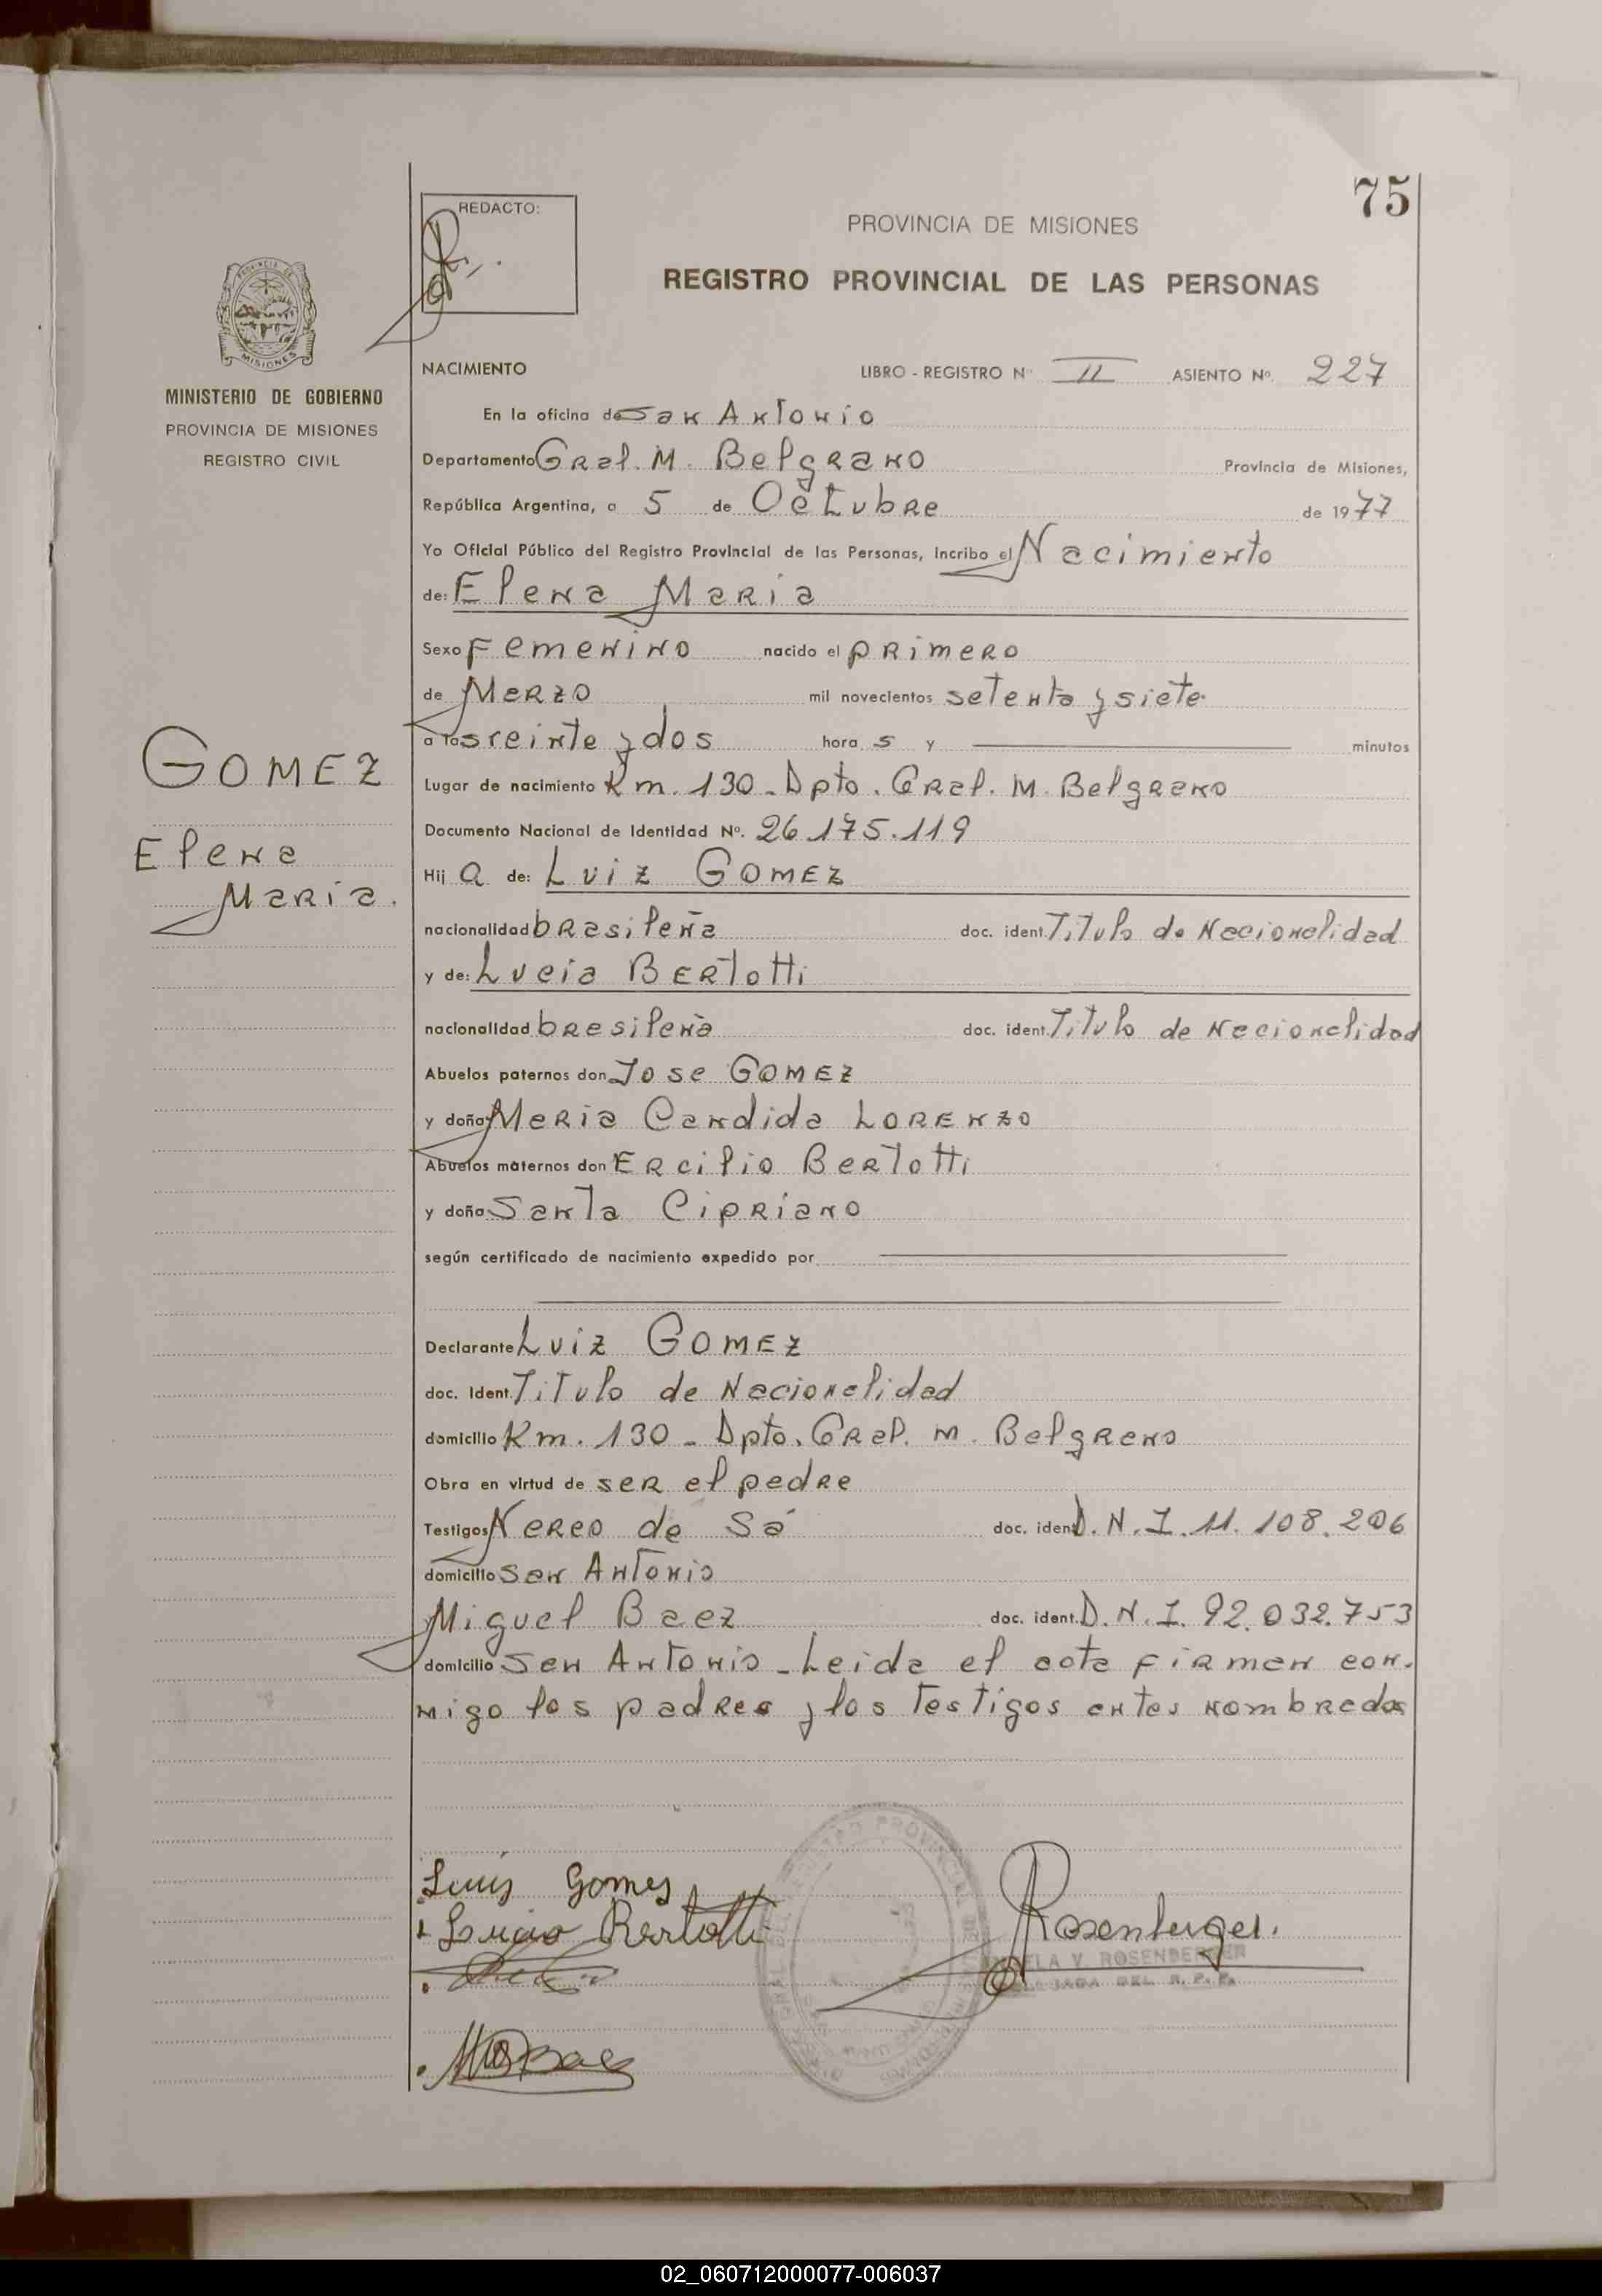 75
REDACTO:
PROVINCIA DE MISIONES
REGISTRO PROVINCIAL DE LAS PERSONAS
MISIONES
MINISTERIO DE GOBIERNO
PROVINCIA DE MISIONES
REGISTRO CIVIL
NACIMIENTO LIBRO - REGISTRO Nº II ASIENTO Nº. 227
En la oficina de San Antonio
Departamento Gral. M. Belgrano Provincia de Misiones,
República Argentina, a 5 de Octubre de 1977
Yo Oficial Público del Registro Provincial de las Personas, incribo el Nacimiento
de: Elena Maria
Sexo Femenino nacido el primero
de Marzo mil novecientos setenta y siete
a las veinte y dos hora s y minutos
GOMEZ
Elena
Maria.
Lugar de nacimiento Km. 130 - Dpto. Gral. M. Belgrano
Documento Nacional de Identidad Nº. 26.175.119
Hij a de: Luiz GOMEZ
nacionalidad brasileña doc. ident. Titulo de Nacionalidad
y de: Lucia BERTOTTI
nacionalidad brasileña doc. ident. Titulo de Nacionalidad
Abuelos paternos don Jose GOMEZ
y doña Maria Candida LORENZO
Abuelos maternos don Ercilio Bertotti
y doña Santa Cipriano
según certificado de nacimiento expedido por
Declarante Luiz GOMEZ
doc. Ident. Titulo de Nacionalidad
domicilio Km. 130 - Dpto. Gral. M. Belgrano
Obra en virtud de ser el padre
Testigos Nereo de Sá doc. ident. D.N.I. 11.108.206
domicilio San Antonio
Miguel Baez doc. ident. D.N.I. 92.032.753
domicilio San Antonio - Leida el acta firman con-
migo los padres y los testigos antes nombrados
Luis Gomes
Lucia Bertotti
Rosenberger.
V. ROSENBERGER
DEL R. P. P.
02_060712000077-006037